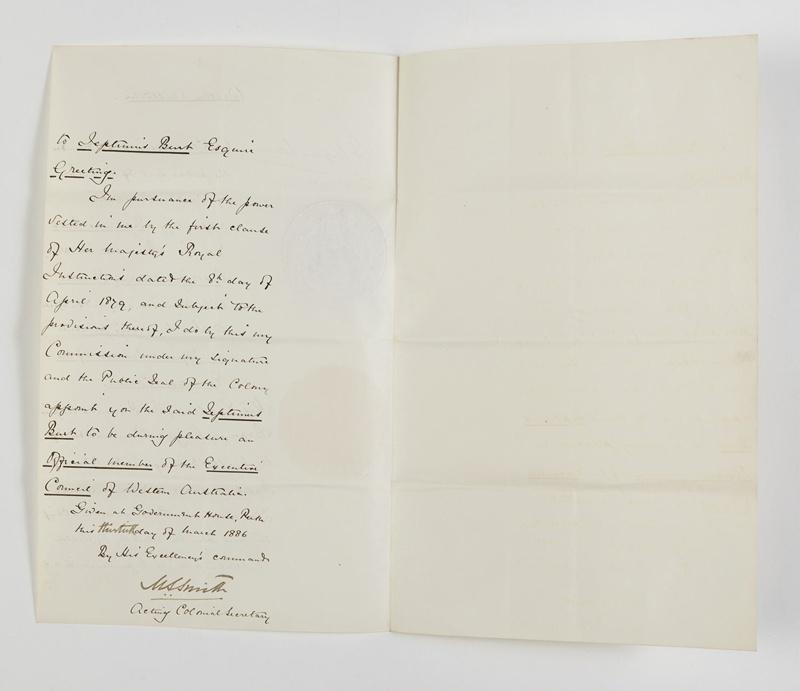 To Septimus Burt Esquire
Greeting.
In pursuance of the power
vested in me by the first clause
of Her Majesty's Royal
Instructions dated the 8th day of
April 1879, and subject to the
provisions thereof, I do by this my
Commission under my signature
and the Public Seal of the Colony
appoint you the said Septimus
Burt to be during pleasure an
Official member of the Executive
Council of Western Australia.
Given at Government House, Perth
this day of March 1886
By His Excellency's command
M S Smith
Acting Colonial Secretary